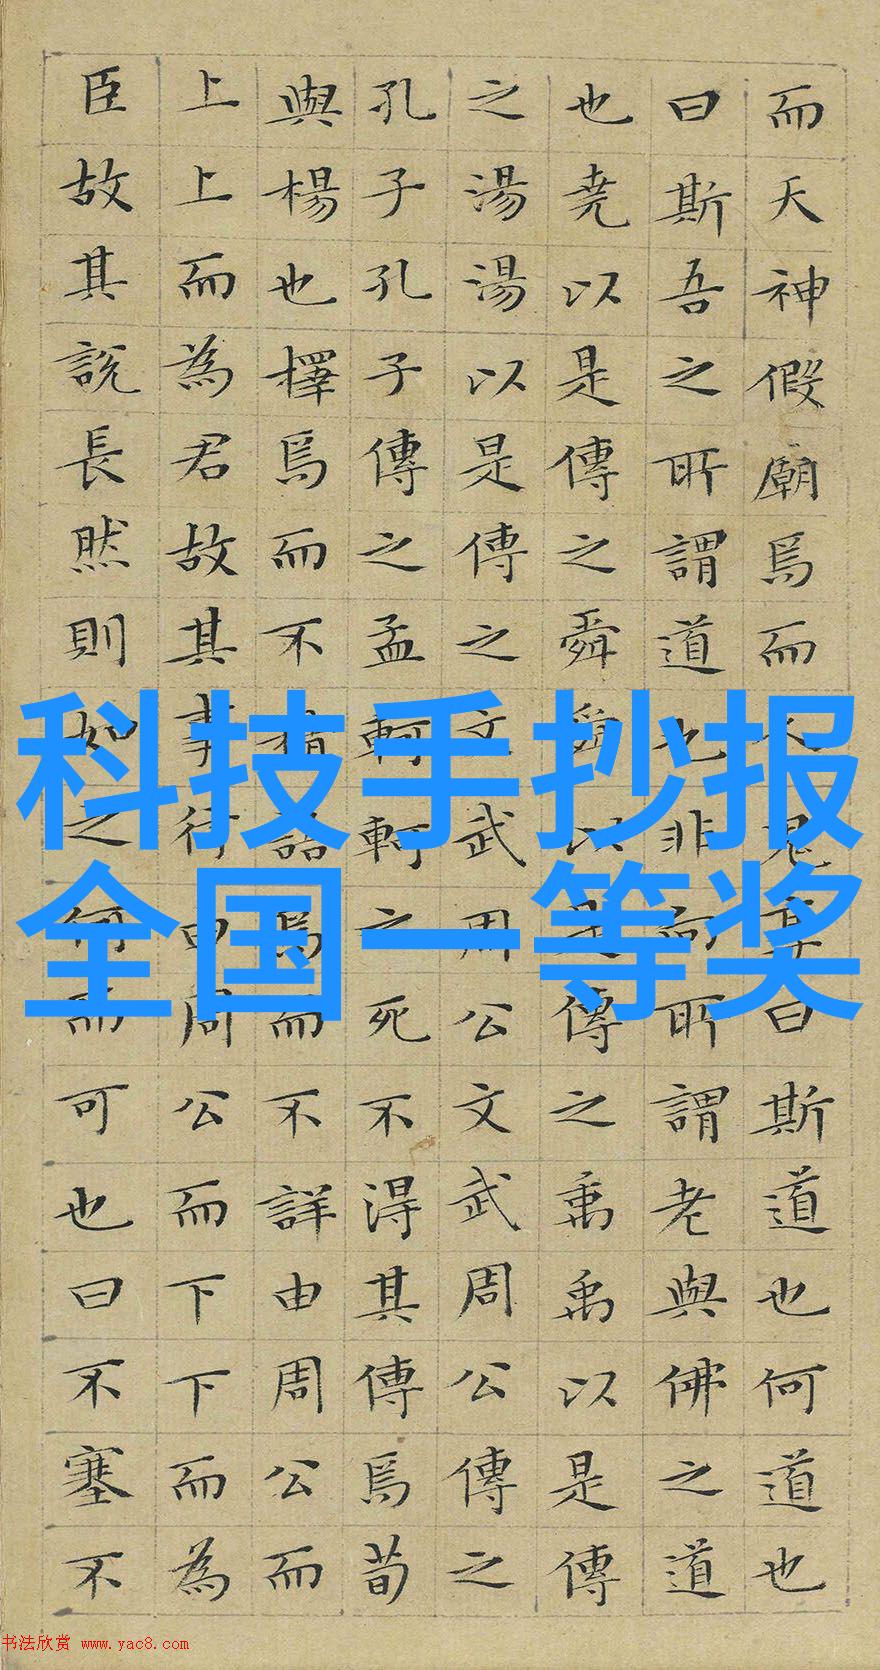 而天神假廟焉而人鬼享曰斯道也何道也
曰斯吾之所謂道也非向所謂老與佛之道
也堯以是傳之舜舜以是傳之禹禹以是傳
之湯湯以是傳之文武周公文武周公傳之
孔子孔子傳之孟軻軻之死不得其傳焉荀
與楊也擇焉而不精語焉而不詳由周公而
上上而為君故其事行由周公而下下而為
臣故其說長然則如之何而可也曰不塞不
科技手抄报
全国一等奖
书法欣赏 www.yac8.com